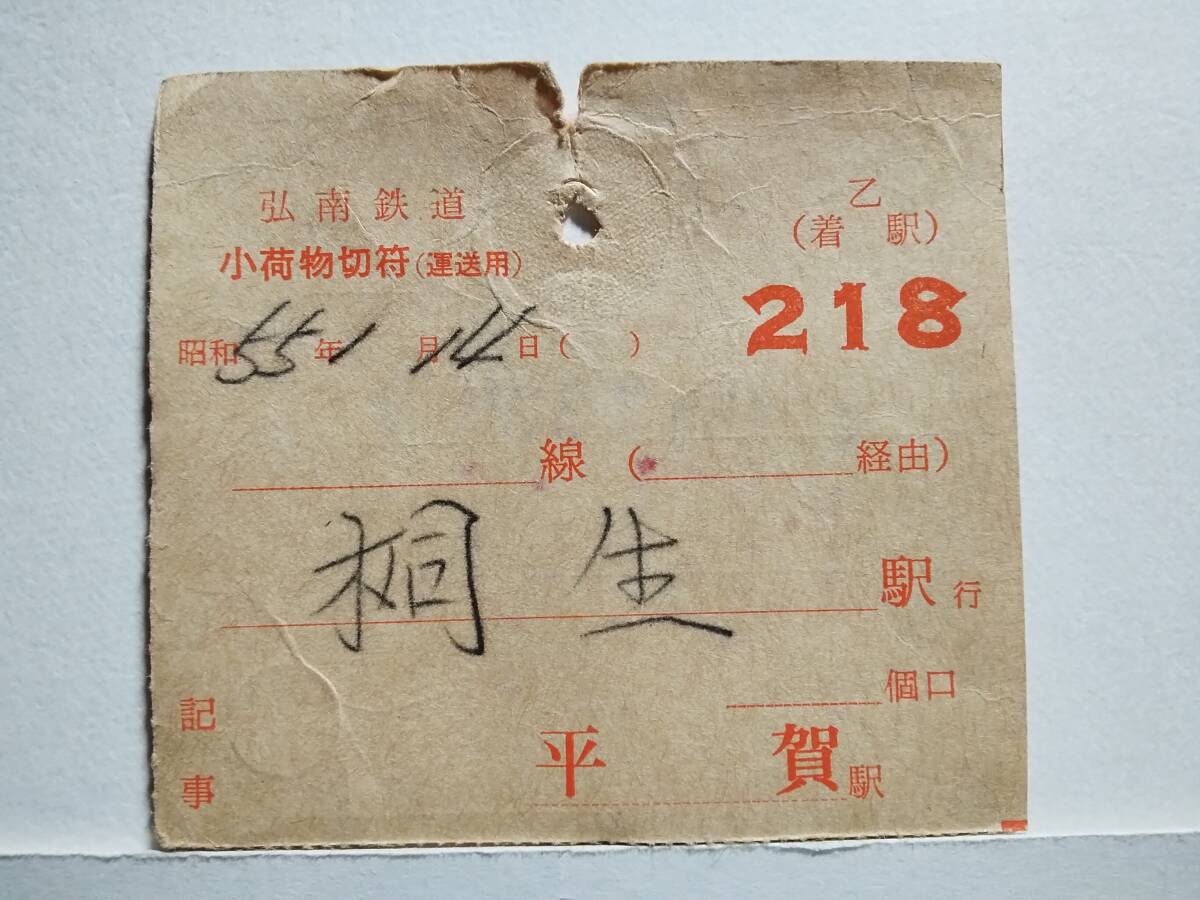 弘南鉄道
小荷物切符(運送用)
乙
(着 駅)
218
昭和55年1月14日( )
線( 経由)
桐生駅行
個口
記事
平賀駅